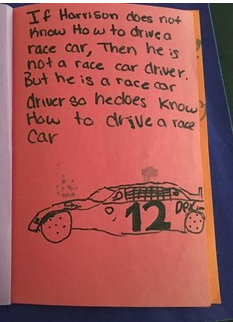 If Harrison does not
know How to drive a
race car, Then he is
not a race car driver.
But he is a race car
driver so he does know
How to drive a race
car
12